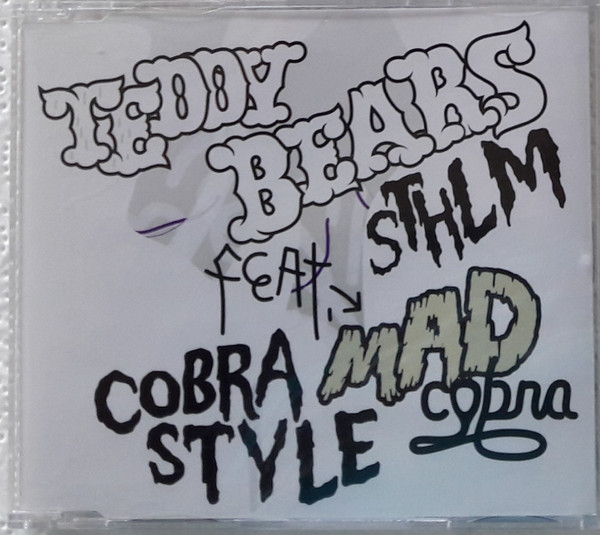 TEDDY
BEARS
STHLM
fEAt.
MAD
cobra
COBRA
STYLE